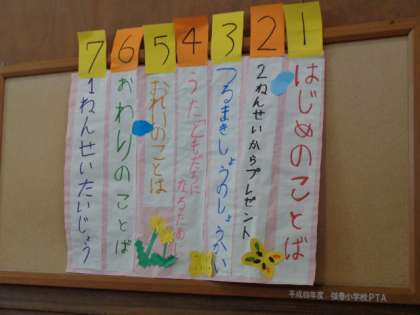 1
はじめのことば
2
2ねんせいからプレゼント
3
つるまきしょうのしょうかい
4
うた ともだちに
なるため
5
おれいのことば
6
おわりのことば
7
1ねんせいたいじょう
弦巻小学校PTA